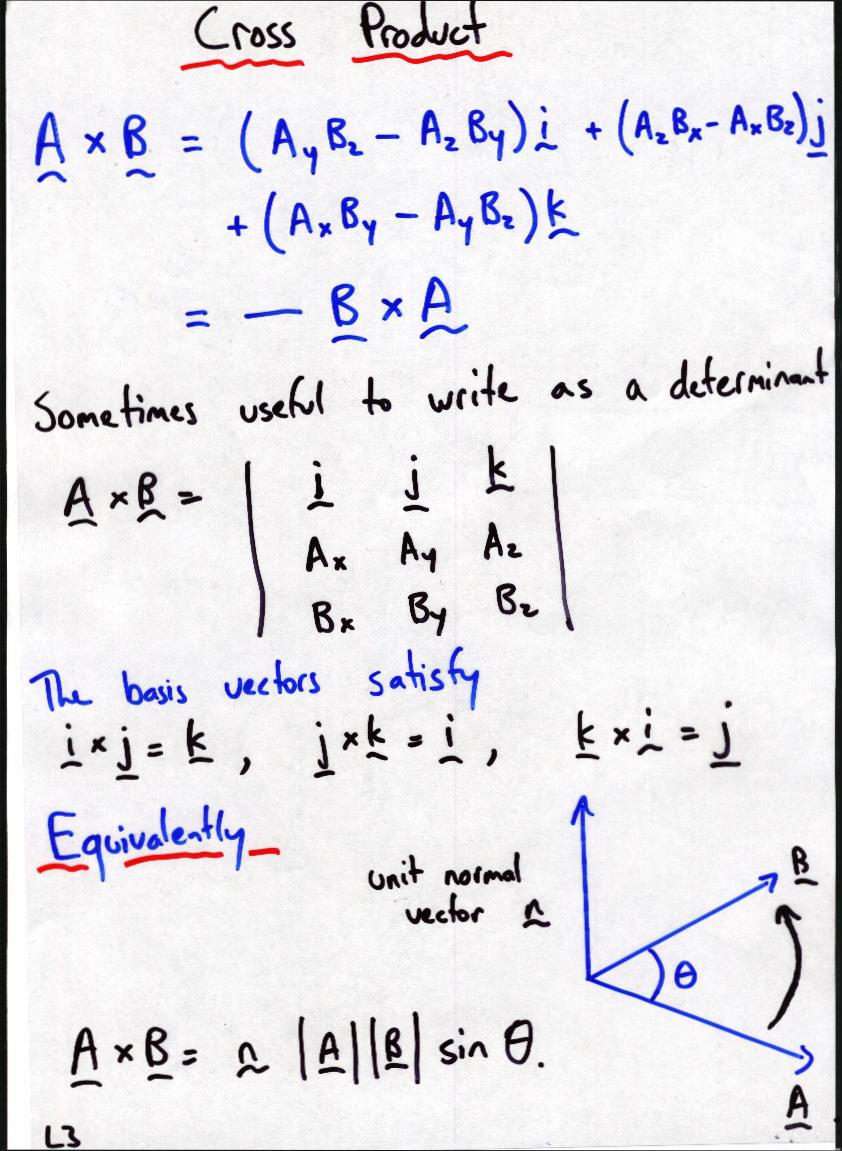 Cross Product
A × B = (AyBz − AzBy) i + (AzBx − AxBz) j
+ (AxBy − AyBz) k
= − B × A
Sometimes useful to write as a determinant
A × B = | i j k |
| Ax Ay Az |
| Bx By Bz |
The basis vectors satisfy
i × j = k , j × k = i , k × i = j
Equivalently
unit normal
vector n
B
θ
A × B = n |A||B| sin θ.
A
L3